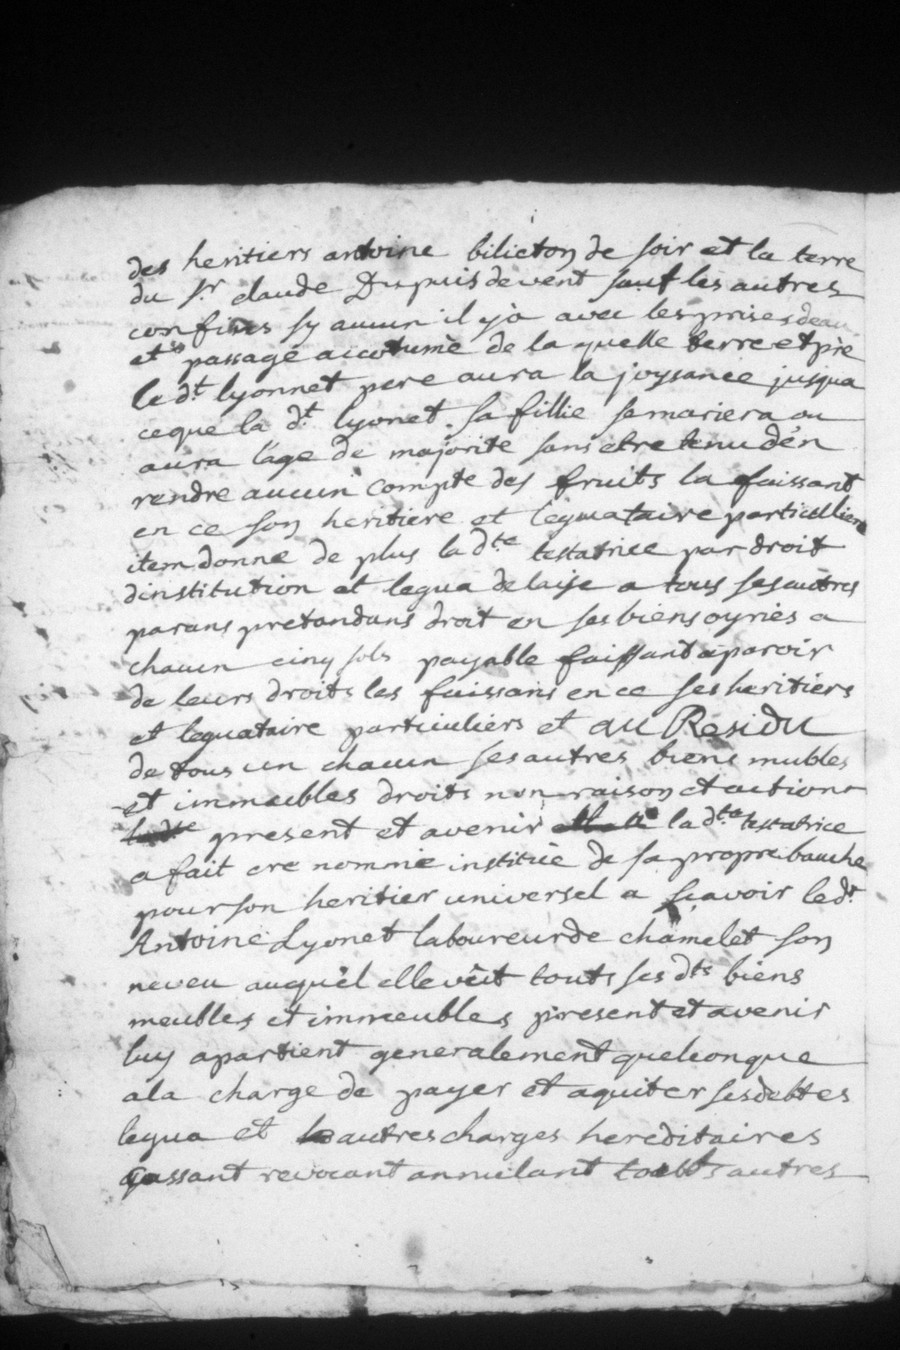 des heritiers antoine bilieton de soir et la terre
du sr claude Dupuis devent sauf les autres
confines sy aucun il y à avec les prises deau
et passage accotumè de la quelle terre et prè
le dt lyonnet pere aura la joyssance jusqua
ceque la dt lyonet sa fillie semariera ou
aura l'age de majorite sans etre tenu dén
rendre aucun compte des fruits la faissant
en ce son heritiere et leguataire particulliere
item donne de plus la dte testatrice par droit
dinstitution et legua delaise a tous ses autres
parans pretandans droit en ses biens oyriès a
chacun cinq sols payable faissant aparoir
de leurs droits les faissans en ce ses heritiers
et leguataire particuliers et au Residu
de tous un chacun ses autres biens mubles
et immeubles droits non raison et actions
present et avenir la dte testatrice
a fait cre nommè institüe de sa propre bauche
pour son heritier universel a scavoir le dt
Antoine Lyonet laboureur de chamelet son
neveu auquel elle veit touts ses dts biens
meubles et immeubles present et avenir
luy apartient generalement quelconque
ala charge de payer et aquiter ses debtes
legua et autres charges hereditaires
cassant revocant annulant toutts autres